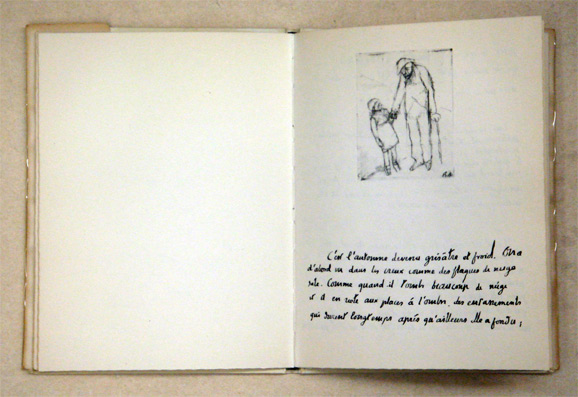 C'est l'automne devenu grisâtre et froid.
d'abord vu dans les creux comme des flaques de neige
sale. Comme quand il tombe beaucoup de neige
et il en reste aux places à l'ombre, des
qui durent longtemps après qu'ailleurs elle a fondu ;